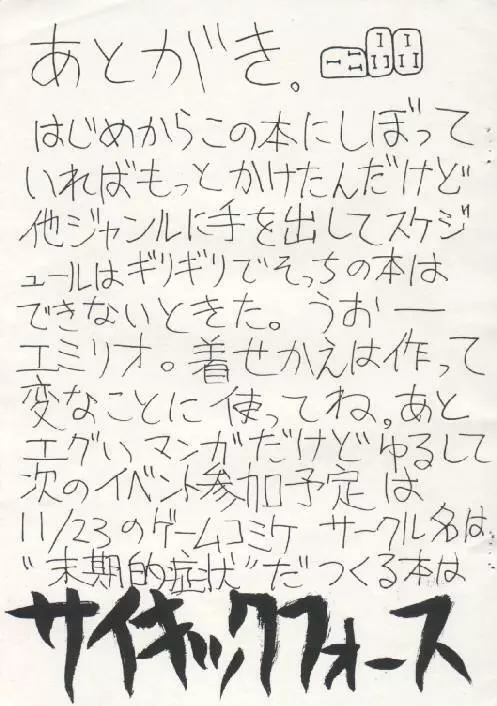 あとがき。
はじめからこの本にしぼって
いればもっとかけたんだけど
他ジャンルに手を出してスケジ
ュールはギリギリでそっちの本は
できないときた。うおー
エミリオ。着せかえは作って
変なことに使ってね。あと
エグいマンガだけどゆるして
次のイベント参加予定は
11/23のゲームコミケ サークル名は
"末期的症状"だつくる本は
サイキックフォース